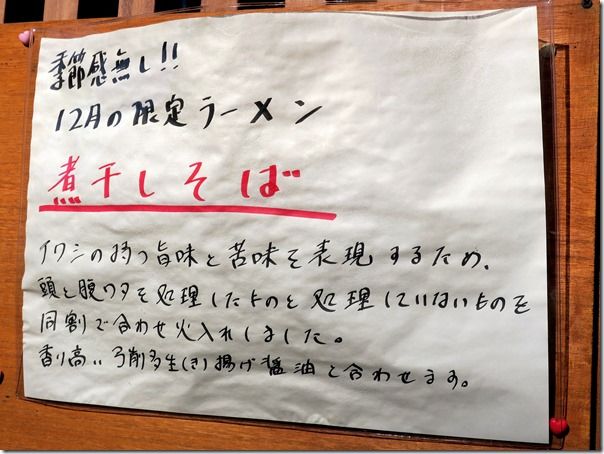 季節感無し!!
12月の限定ラーメン
煮干しそば
イワシの持つ旨味と苦味を表現するため、
頭と腹ワタを処理したものと処理していないものを
同割で合わせ火入れしました。
香り高い弓削多生(き)揚げ醤油と合わせます。